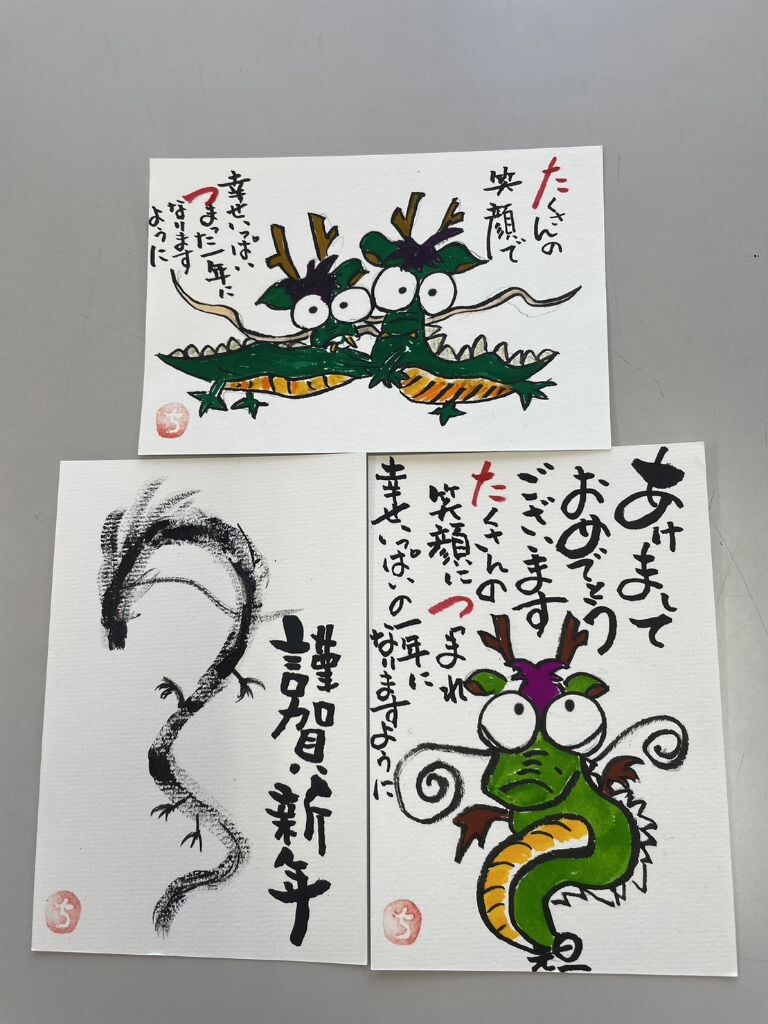 たくさんの
笑顔で
幸せいっぱい
つまった一年に
なります
ように
ち
謹賀新年
ち
あけまして
おめでとう
ございます
たくさんの
笑顔につゝまれ
幸せいっぱいの一年に
なりますように
元旦
ち